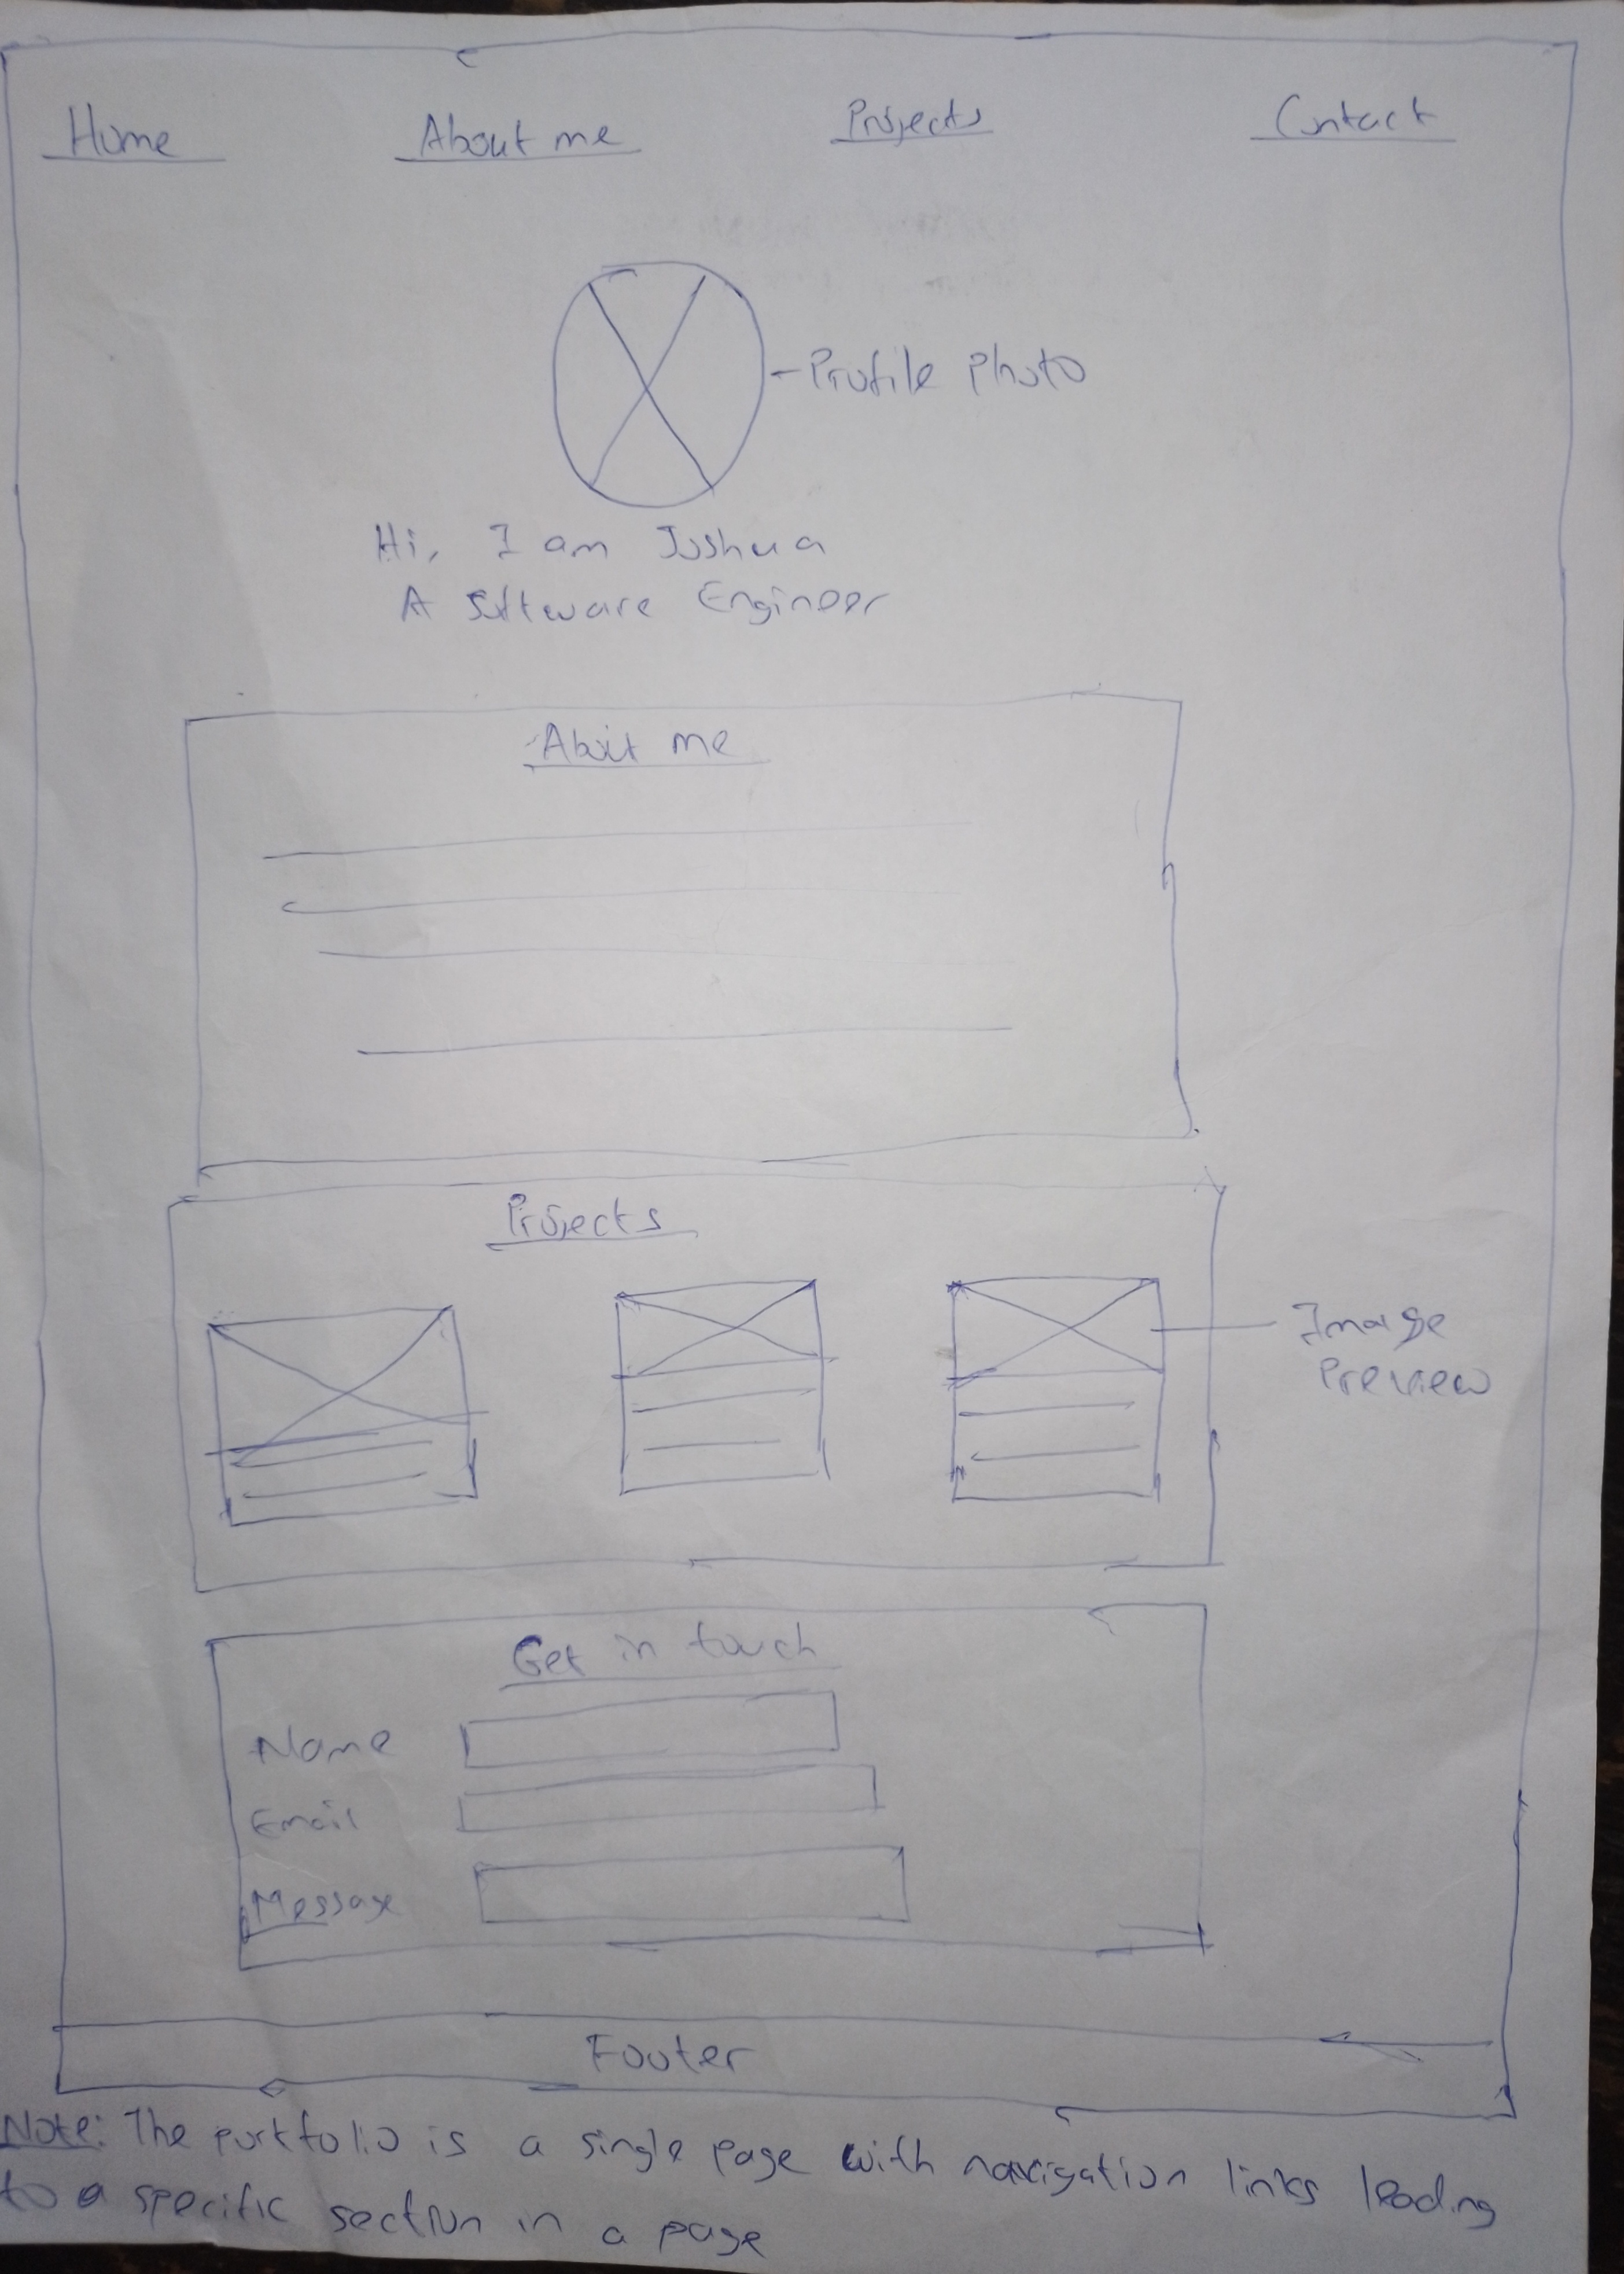 Home About me Projects Contact
Profile photo
Hi, I am Joshua
A Software Engineer
About me
Projects
Image
Preview
Get in touch
Name
Email
Message
Footer
Note: The portfolio is a single page with navigation links leading
to a specific section in a page